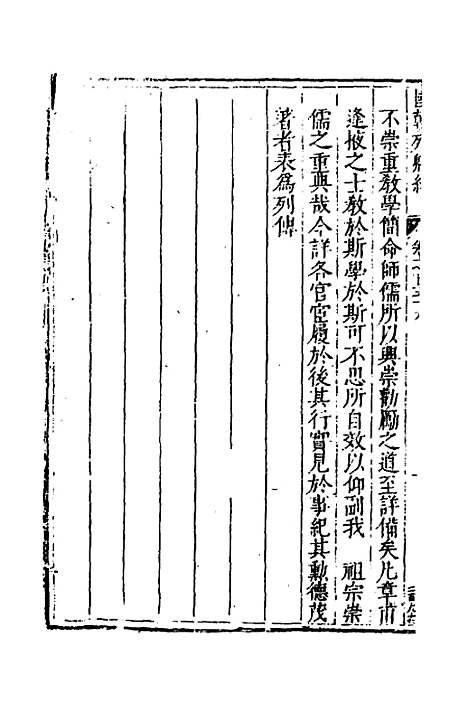 國朝列卿紀 卷之一百五十九
不崇重教學簡命師儒所以興崇勸勵之道至詳備矣凡章甫
逢掖之士教於斯學於斯可不思所自效以仰副我 祖宗崇
儒之重典哉今詳各官宦履於後其行實見於事紀其勳德茂
著者表為列傳